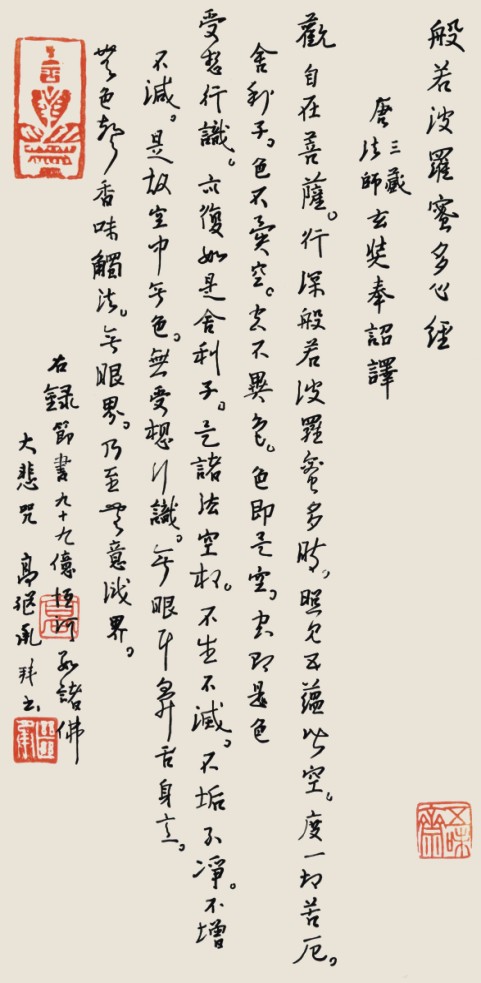 般若波羅蜜多心經
唐三藏法師玄奘奉詔譯
觀自在菩薩。行深般若波羅蜜多時。照見五蘊皆空。度一切苦厄。
舍利子。色不異空。空不異色。色即是空。空即是色
受想行識。亦復如是舍利子。是諸法空相。不生不滅。不垢不淨。不增
不減。是故空中無色。無受想行識。無眼耳鼻舌身意。
無色聲香味觸法。無眼界。乃至無意識界。
右錄節書九十九億恒河沙諸佛
大悲咒
拜書
五味齋